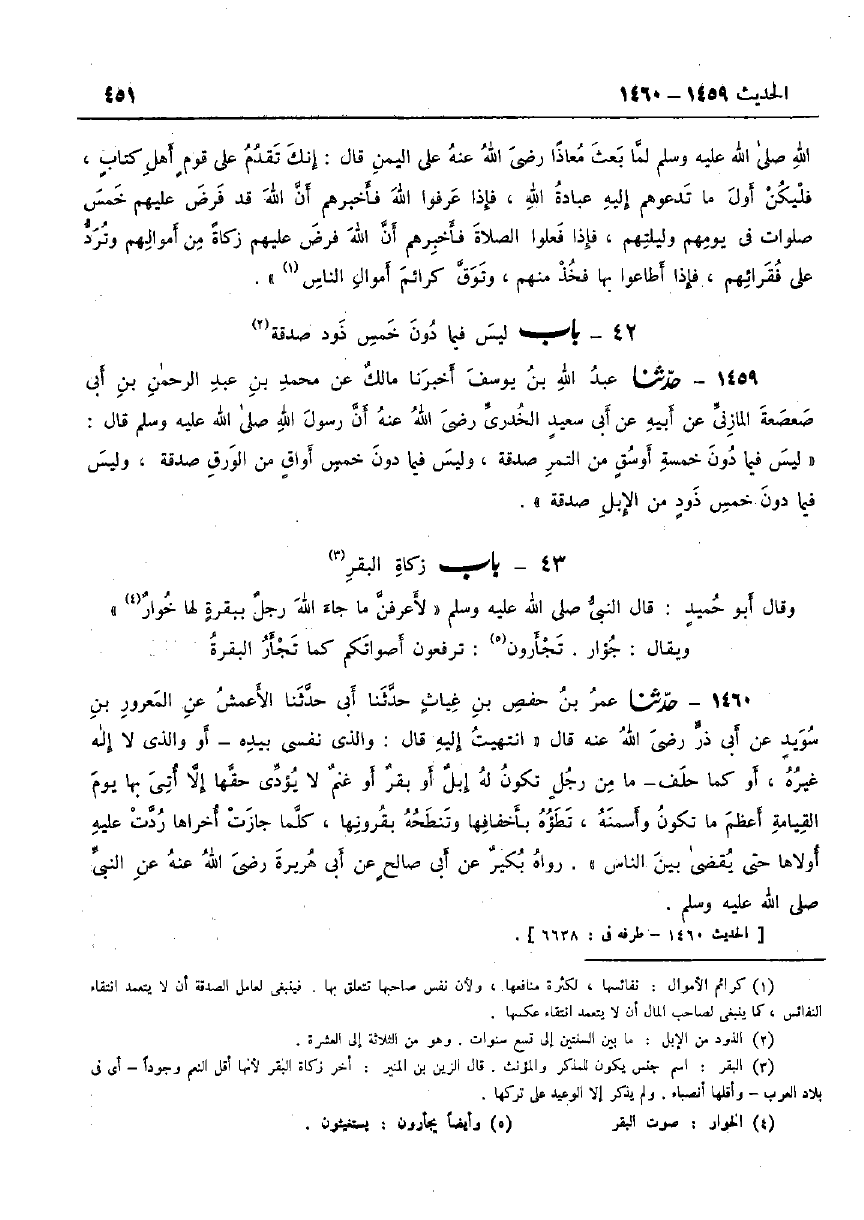 الحديث ١٤٥٩ – ١٤٦٠ ٤٥١
اللهِ صلىٰ اللهُ عليه وسلم لمَّا بَعثَ مُعاذًا رضىَ اللهُ عنهُ على اليمنِ قال : إنكَ تَقدُمُ على قومٍ أهلِ كتابٍ ،
فلْيكُنْ أولَ ما تَدعوهم إليهِ عبادةُ اللهِ ، فإذا عَرفوا اللهَ فأخبِرهم أنَّ اللهَ قد فَرضَ عليهم خَمسَ
صلوات فى يومِهم وليلتِهم ، فإذا فَعلوا الصلاةَ فأخبِرهم أنَّ اللهَ فرضَ عليهم زكاةً مِن أموالِهم وتُرَدُّ
على فُقرائهم ، فإذا أطاعوا بها فخُذْ منهم ، وتَوَقَّ كرائمَ أموالِ الناسِ (١) » .
٤٢ – باب ليسَ فيما دُونَ خَمسِ ذَود صدقة (٢)
١٤٥٩ – حدّثنا عبدُ اللهِ بنُ يوسفَ أخبرَنا مالكٌ عن محمدِ بنِ عبدِ الرحمٰنِ بنِ أبى
صَعصَعةَ المازنىِّ عن أبيهِ عن أبى سعيدٍ الخُدرىِّ رضىَ اللهُ عنهُ أنَّ رسولَ اللهِ صلىٰ الله عليه وسلم قال :
« ليسَ فيما دُونَ خمسةِ أوسُقٍ من التمرِ صدقة ، وليسَ فيما دونَ خمسِ أواقٍ من الوَرِقِ صدقة ، وليسَ
فيما دونَ خمسِ ذَودٍ من الإبلِ صدقة » .
٤٣ – باب زكاةِ البقرِ (٣)
وقال أبو حُميدٍ : قال النبىُّ صلى الله عليه وسلم « لأعرفنَّ ما جاءَ اللهَ رجلٌ ببقرةٍ لها خُوارٌ (٤) »
ويقال : جُؤار . تَجْأَرون (٥) : ترفعون أصواتَكم كما تَجْأَرُ البقرةُ
١٤٦٠ – حدّثنا عمرُ بنُ حفصِ بنِ غِياثٍ حدَّثَنا أبى حدَّثَنا الأعمشُ عنِ المَعرورِ بنِ
سُوَيدٍ عن أبى ذرٍّ رضىَ اللهُ عنه قال « انتهيتُ إليهِ قال : والذى نفسى بيدِه – أو والذى لا إلٰه
غيرُهُ ، أو كما حلَف – ما مِن رجُلٍ تكونُ لهُ إبلٌ أو بقرٌ أو غنمٌ لا يُؤدِّى حقَّها إلَّا أُتِىَ بها يومَ
القِيامةِ أعظمَ ما تكونُ وأسمنَهُ ، تَطَؤُهُ بأخفافِها وتَنطَحُهُ بقُرونِها ، كلَّما جازَتْ أُخراها رُدَّتْ عليهِ
أُولاها حتى يُقضىٰ بينَ الناس » . رواهُ بُكيرٌ عن أبى صالحٍ عن أبى هُريرةَ رضىَ اللهُ عنهُ عنِ النبىِّ
صلى الله عليه وسلم .
[ الحديث ١٤٦٠ – طرفه فى : ٦٦٣٨ ] .
(١) كرائم الأموال : نفائسها ، لكثرة منافعها ، ولأن نفس صاحبها تتعلق بها . فينبغى لعامل الصدقة أن لا يتعمد انتقاء
النفائس ، كما ينبغى لصاحب المال أن لا يتعمد انتقاء عكسها .
(٢) الذود من الإبل : ما بين السنتين إلى تسع سنوات . وهو من الثلاثة إلى العشرة .
(٣) البقر : اسم جنس يكون للمذكر والمؤنث . قال الزين بن المنير : أخر زكاة البقر لأنها أقل النعم وجوداً – أى فى
بلاد العرب – وأقلها أنصباء . ولم يذكر إلا الوعيد على تركها .
(٤) الخوار : صوت البقر (٥) وأيضاً يجأرون : يستغيثون .